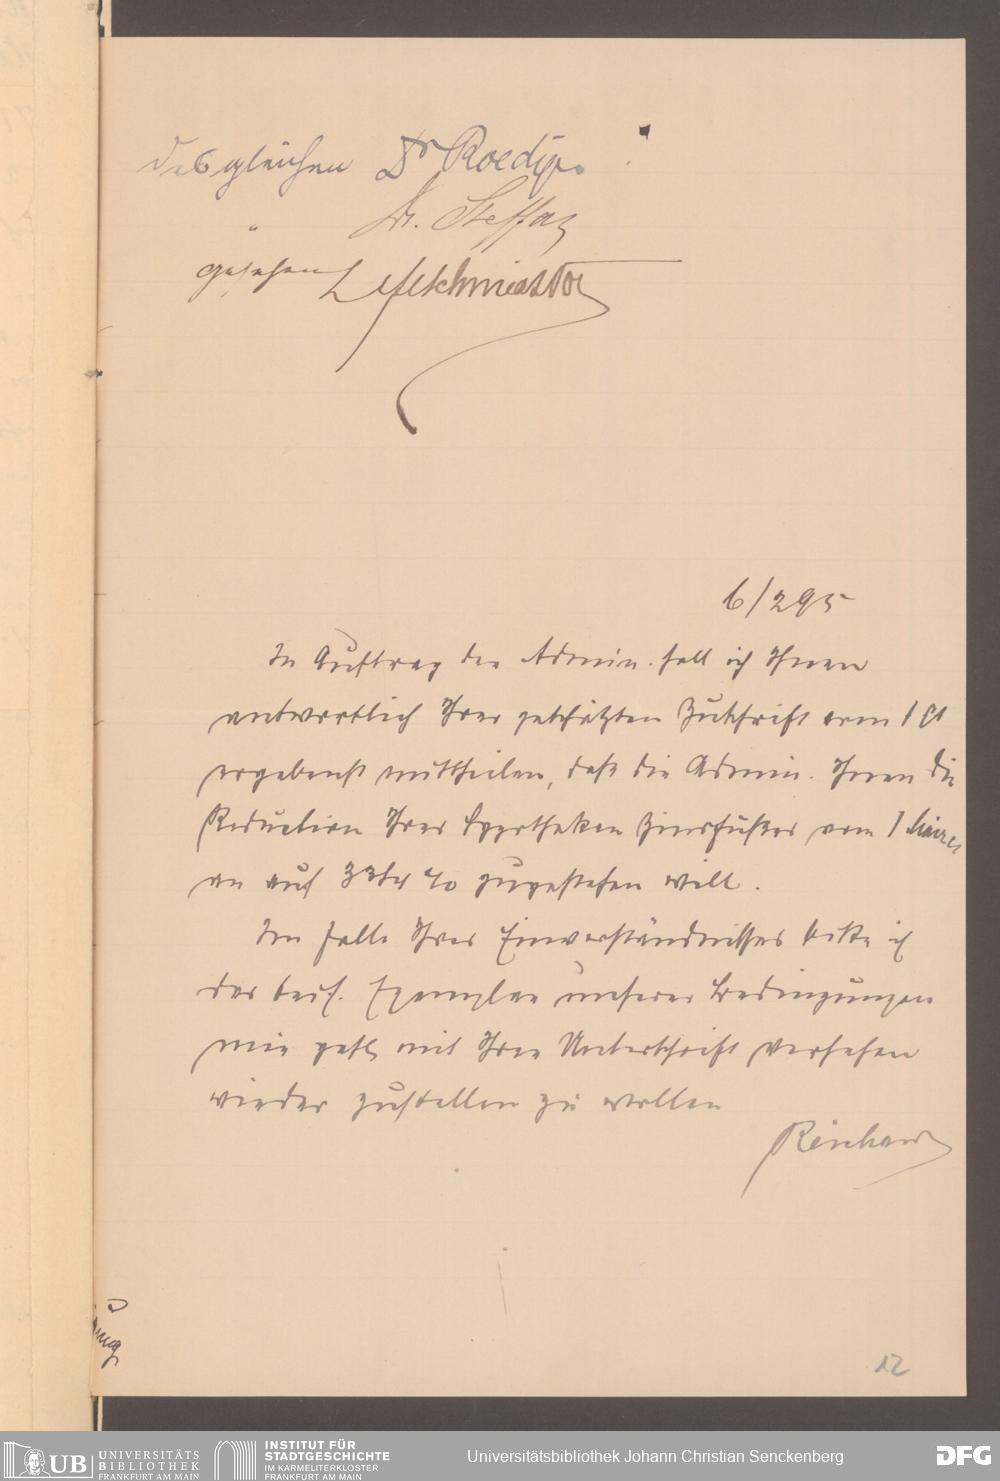 desgleichen Dr Roediger
" Dr. Steffan
gesehen
6/2 95
Im Auftrag der Admin. soll ich Ihnen
antwortlich Ihrer geschätzten Zuschrift vom 1 ct
ergebenst mittheilen, daß die Admin. Ihnen die
Reduction Ihres Hypotheken Zinsfußes vom 1 März
an auf 3 3/4 % zugestehen will.
Im Falle Ihres Einverständnisses bitte ich
das beif. Exemplar unserer Bedingungen
mir gefl. mit Ihrer Unterschrift versehen
wieder zustellen zu wollen
12
UB UNIVERSITÄTS
BIBLIOTHEK
FRANKFURT AM MAIN
INSTITUT FÜR
STADTGESCHICHTE
IM KARMELITERKLOSTER
FRANKFURT AM MAIN
Universitätsbibliothek Johann Christian Senckenberg
DFG